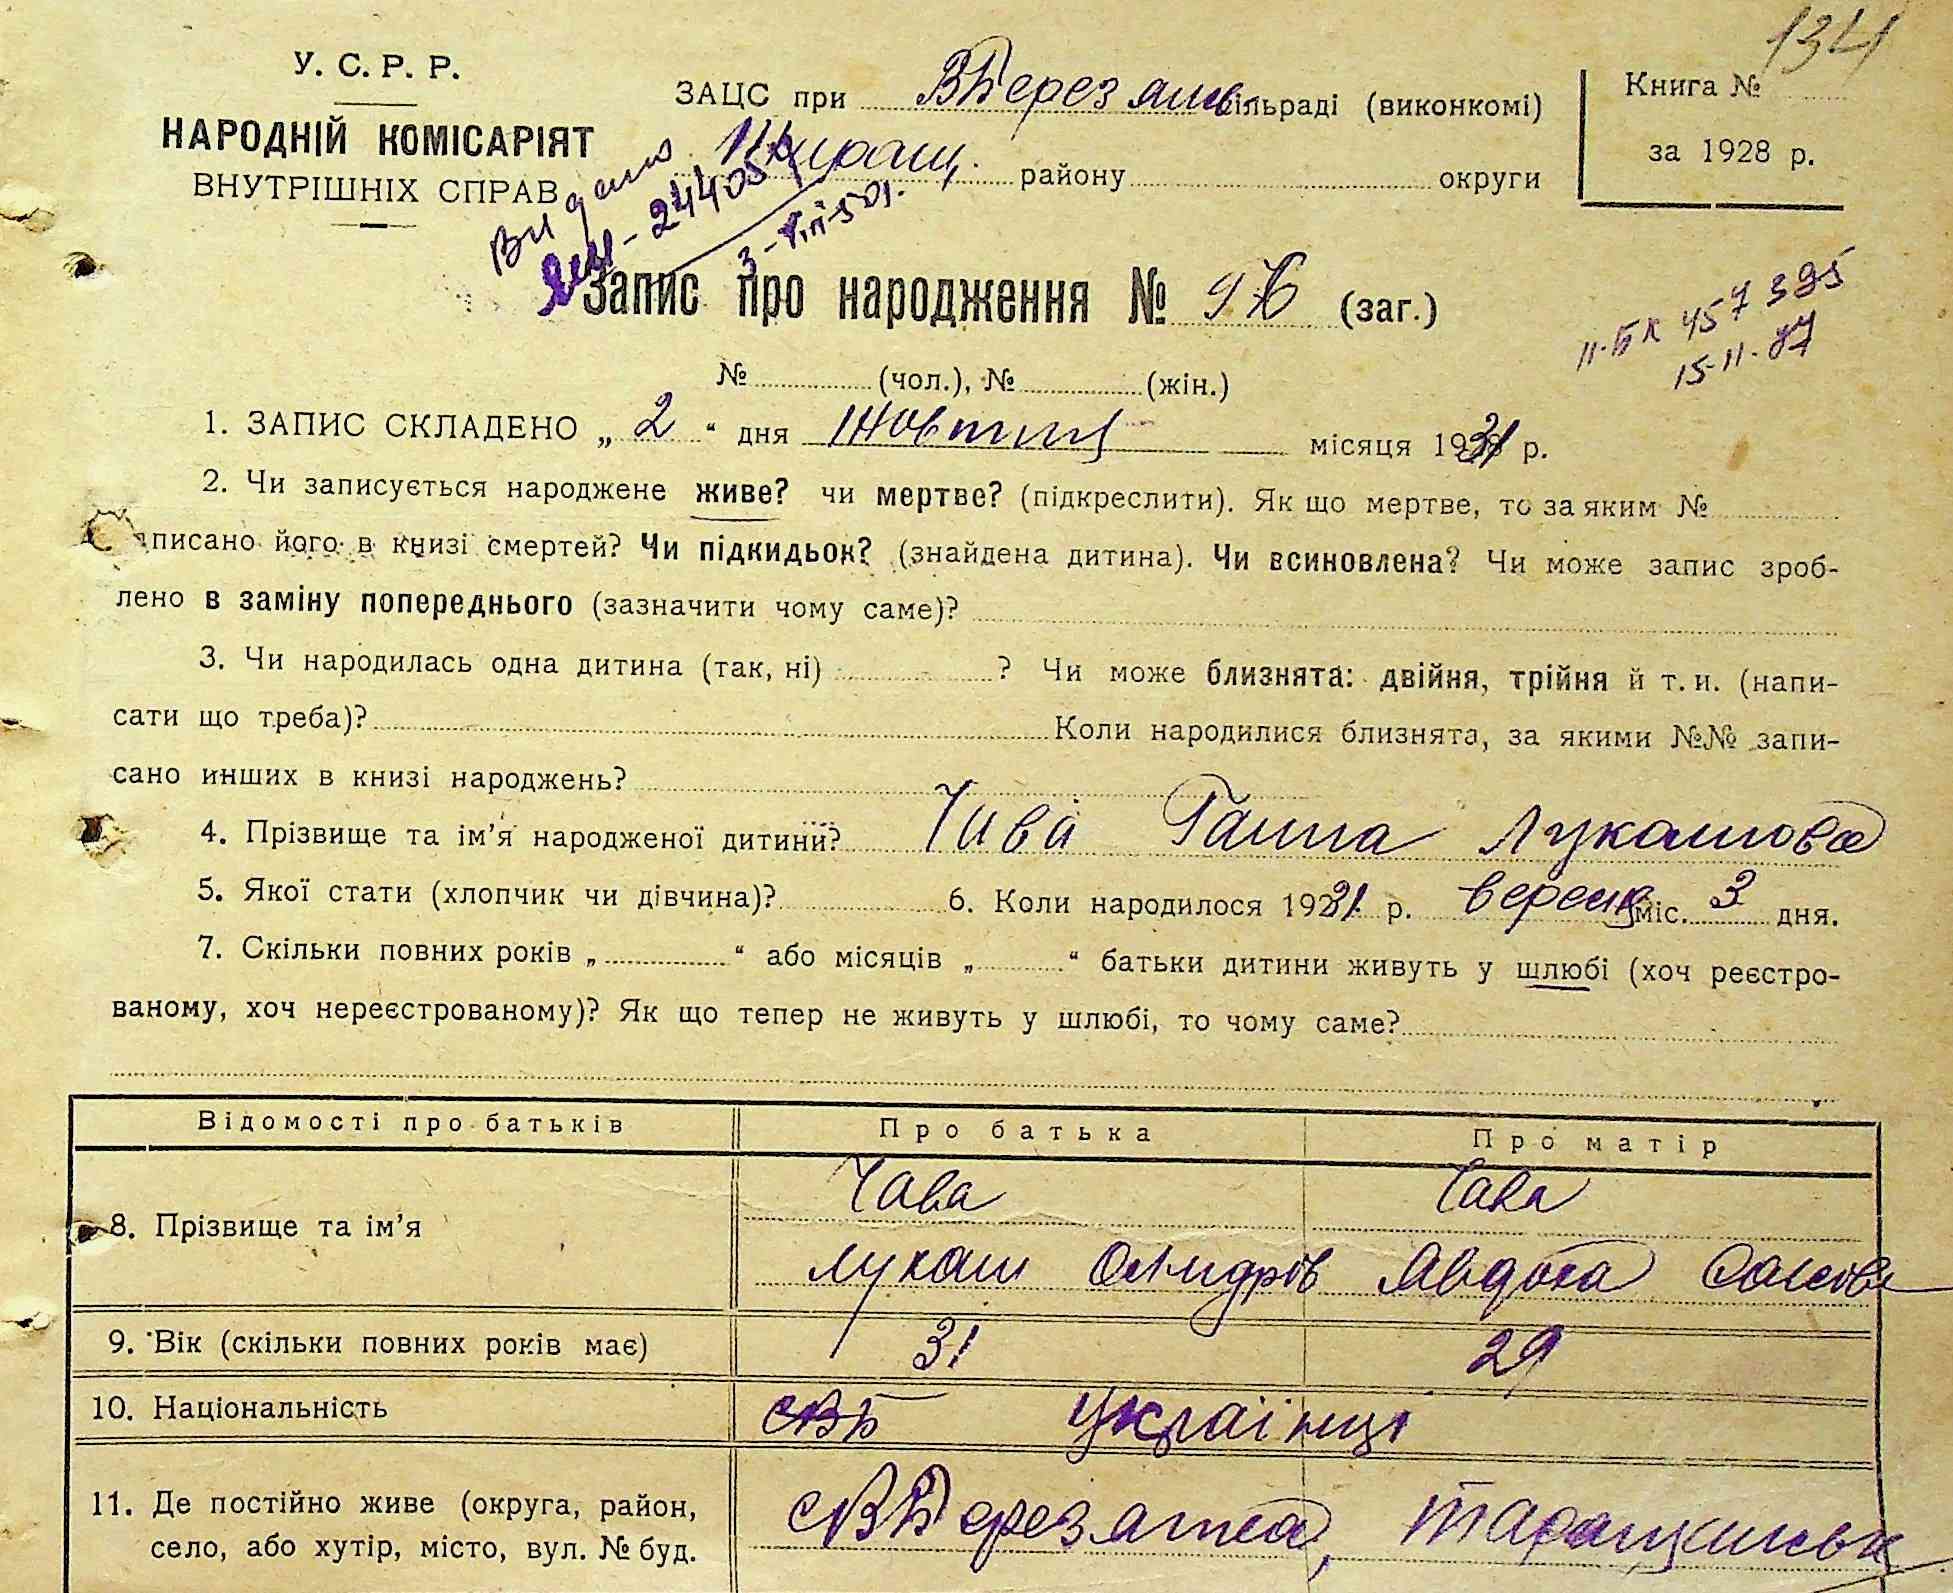 134
У. С. Р. Р.
НАРОДНІЙ КОМІСАРІЯТ
ВНУТРІШНІХ СПРАВ
ЗАЦС при ВБерезянс. сільраді (виконкомі)
району округи
Книга №
за 1928 р.
Видано
24405
Запис про народження № 96 (заг.)
II-БК 457395
15-11-87
№ (чол.), № (жін.)
1. ЗАПИС СКЛАДЕНО „ 2 “ дня Жовтня місяця 1931 р.
2. Чи записується народжене живе? чи мертве? (підкреслити). Як що мертве, то за яким №
записано його в книзі смертей? Чи підкидьок? (знайдена дитина). Чи всиновлена? Чи може запис зроб-
лено в заміну попереднього (зазначити чому саме)?
3. Чи народилась одна дитина (так, ні) ? Чи може близнята: двійня, трійня й т. и. (напи-
сати що треба)? Коли народилися близнята, за якими №№ запи-
сано инших в книзі народжень?
4. Прізвище та ім’я народженої дитини? Чава Ганна Лукашова
5. Якої стати (хлопчик чи дівчина)? 6. Коли народилося 1931 р. вересня міс. 3 дня.
7. Скільки повних років „ “ або місяців „ “ батьки дитини живуть у шлюбі (хоч реєстро-
ваному, хоч нереєстрованому)? Як що тепер не живуть у шлюбі, то чому саме?
Відомості про батьків Про батька Про матір
8. Прізвище та ім’я Чава Чава
Лукаш Явдоха
9. Вік (скільки повних років має) 31 29
10. Національність українці
11. Де постійно живе (округа, район, сВБерезянка, Таращанськ
село, або хутір, місто, вул. № буд.